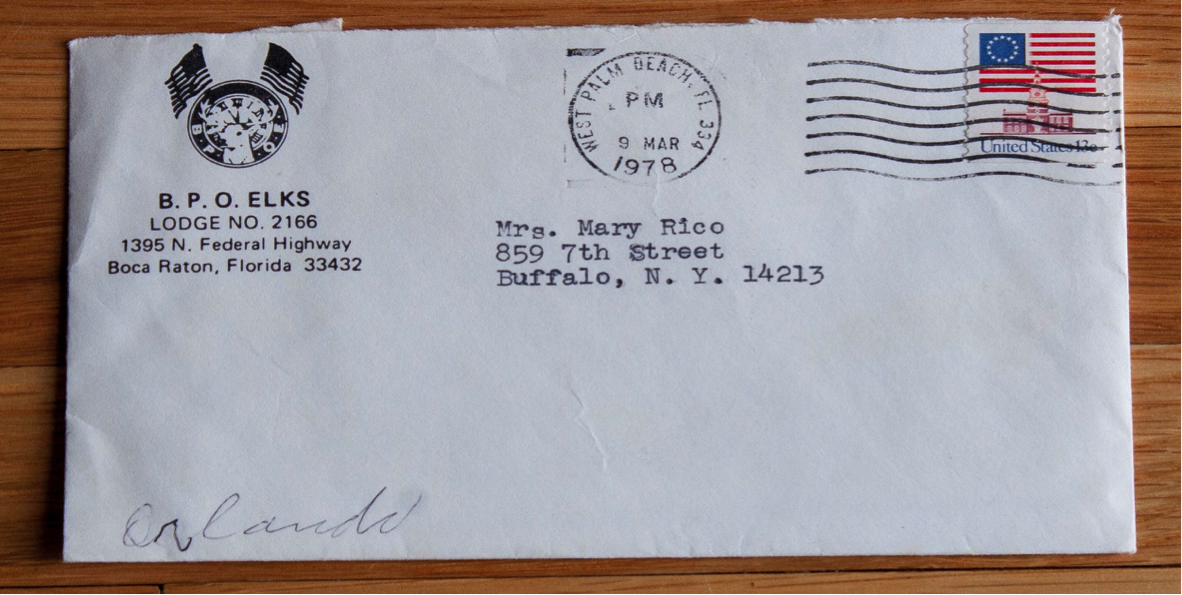 B. P. O. ELKS
LODGE NO. 2166
1395 N. Federal Highway
Boca Raton, Florida 33432
WEST PALM BEACH, FL 334
PM
9 MAR
1978
United States 13c
Mrs. Mary Rico
859 7th Street
Buffalo, N. Y. 14213
Orlando